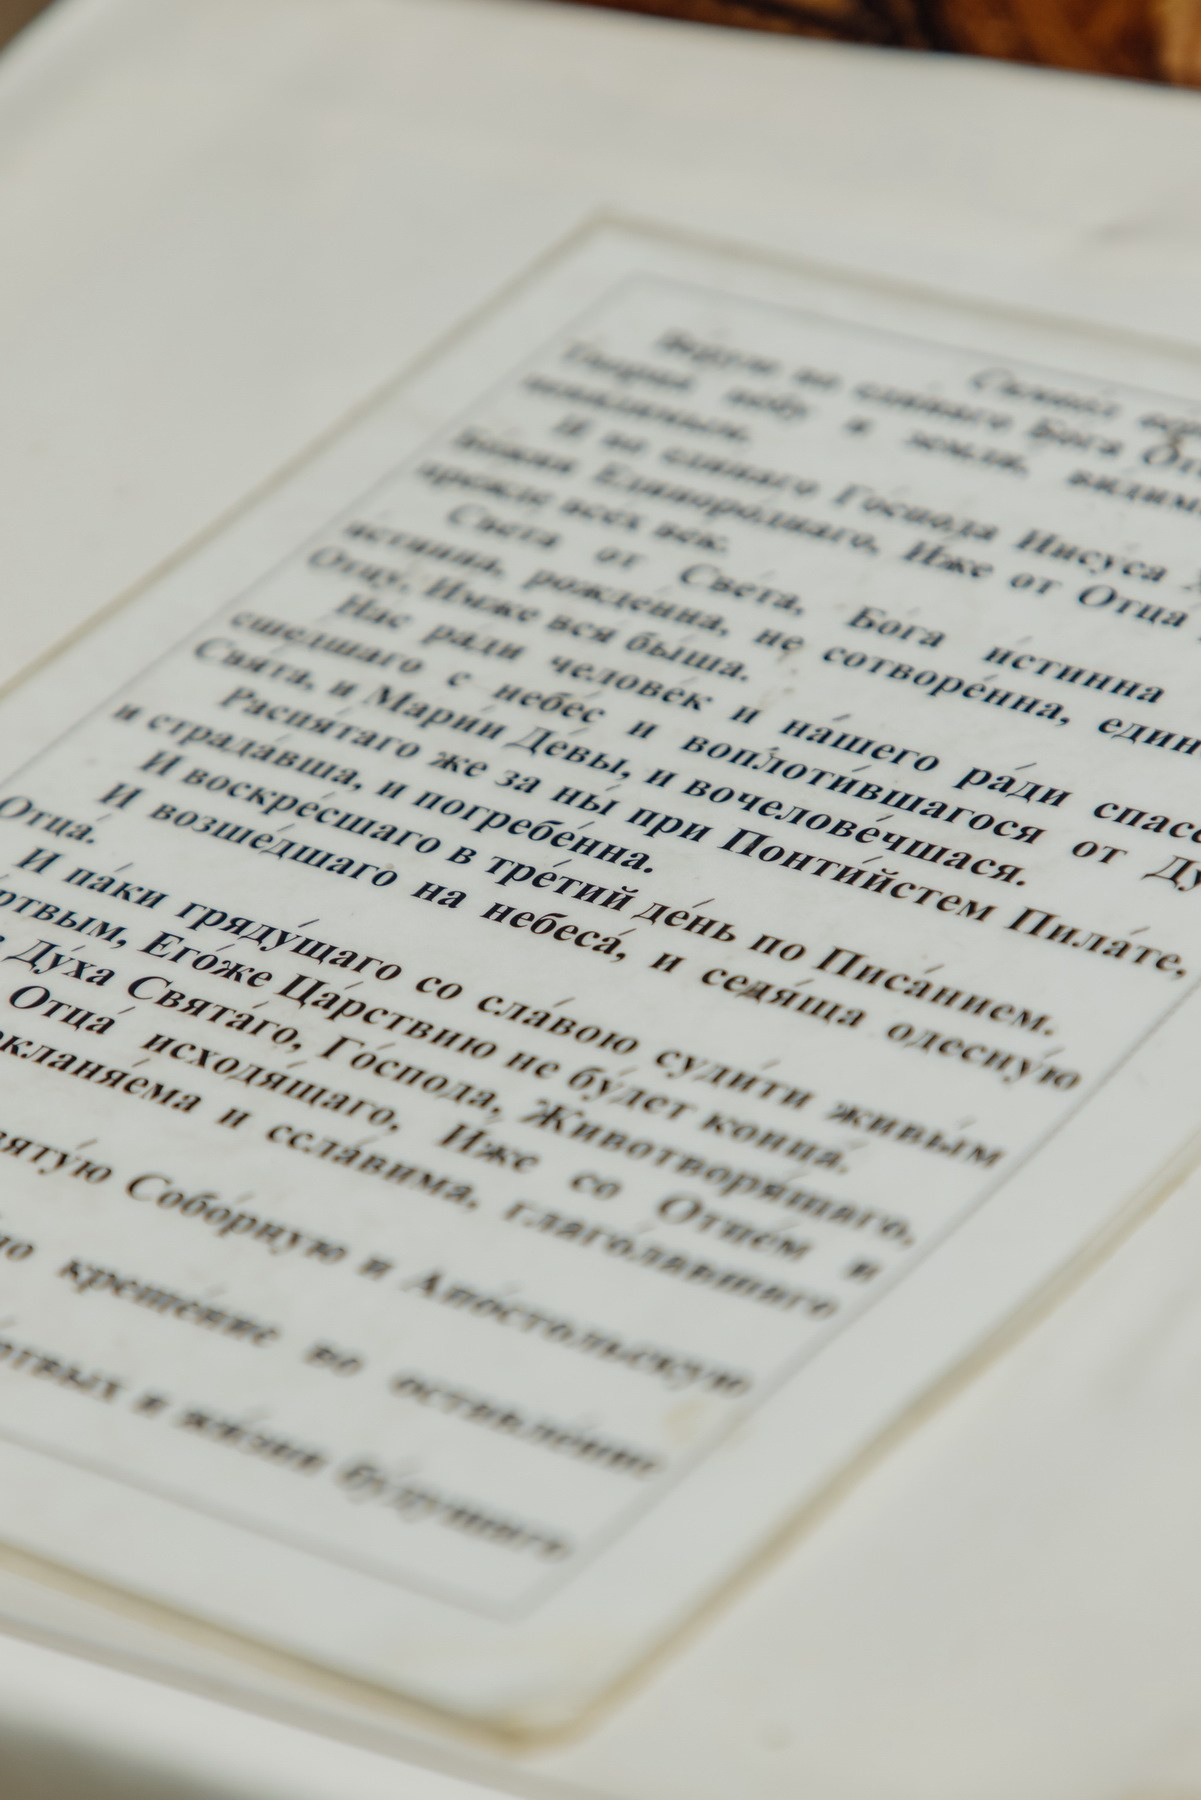 Символ вер
Верую во единаго Бога От
Творца небу и земли, видим
невидимым.
И во единаго Го́спода Иису́са Х
Божия Единоро́днаго, И́же от Отца́
прежде всех век.
Света от Све́та, Бо́га и́стинна
истинна, рожде́нна, не сотворе́нна, един
Отцу, Имже вся бы́ша.
Нас ра́ди челове́к и на́шего ра́ди спасе
сшедшаго с небе́с и воплоти́вшагося от Ду
Свя́та, и Мари́и Де́вы, и вочелове́чшася.
Распя́таго же за ны́ при Понти́йстем Пила́те,
и страда́вша, и погребе́нна.
И воскре́сшаго в тре́тий де́нь по Писа́нием.
И возше́дшаго на небеса́, и седя́ща одесну́ю
Отца́.
И па́ки гряду́щаго со сла́вою суди́ти живы́м
е́ртвым, Его́же Ца́рствию не бу́дет конца́.
в Ду́ха Свята́го, Го́спода, Животворя́щаго,
Отца́ исходя́щаго, И́же со Отце́м и
окланя́ема и ссла́вима, глаго́лавшаго
вяту́ю Собо́рную и Апо́стольскую
но креще́ние во оставле́ние
е́ртвых и жи́зни бу́дущаго